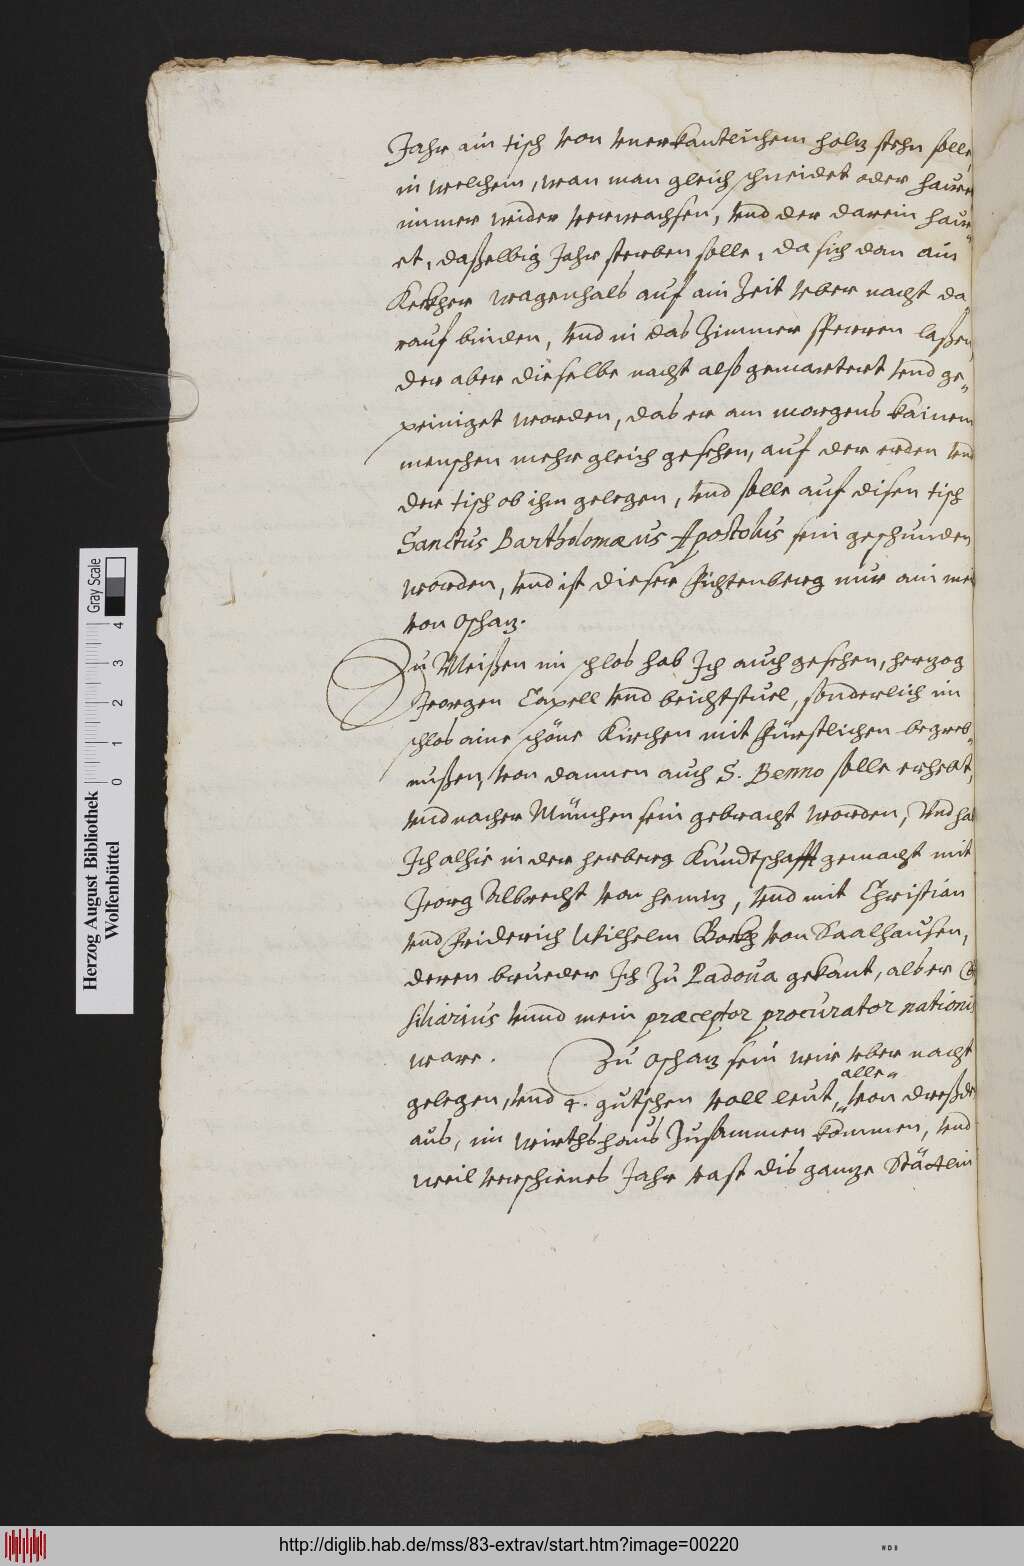 Jahr ain tisch von vnerkantlichem holz stehn solle,
in welchem, wan man gleich schneidet oder hauet
immer wider verwachsen, vnd der darein hau„
et, daßelbig Jahr sterben solle, da sich dan ain
Kekher wagenhals auf ain Zeit vber nacht da
rauf binden, vnd in das Zimmer sperren laßen,
der aber dieselbe nacht alß gemartert vnd ge„
peiniget worden, das er am morgens kainem
menschen mehr gleich gesehen, auf der erden vnd
der tisch ob ihm gelegen, vnd solle auf disen tisch
Sanctus Bartholomæus Apostolus sein geschunden
worden, vnd ist dieser Lichtenberg nur ain meil
von Oschaz.
Zu Meißen im schlos hab Ich auch gesehen, herzog
Georgen Capell vnd beichtstuel, sonderlich im
schlos aine schöne Kirchen mit fürstlichen begreb„
nußen, von dannen auch S. Benno solle erhebt,
vnd nacher München sein gebracht worden, vnd hab
Ich alhie in der herberg Kundtschafft gemacht mit
Georg Albrecht von heiniz, vnd mit Christian
vnd friderich Wilhelm Borkh von Saalhausen,
deren brueder Ich Zu Padoua gekant, als er Con
siliarius vnnd mein præceptor procurator nationis
ware. Zu Oschaz sein wir vber nacht
gelegen, vnd 4. gutschen voll leut, alle von Dreßden
aus, im wirthshaus Zusammen kommen, vnd
weil verschienes Jahr vast dis ganze Stättlin
Herzog August Bibliothek
Wolfenbüttel
Gray Scale
0 1 2 3 4
http://diglib.hab.de/mss/83-extrav/start.htm?image=00220